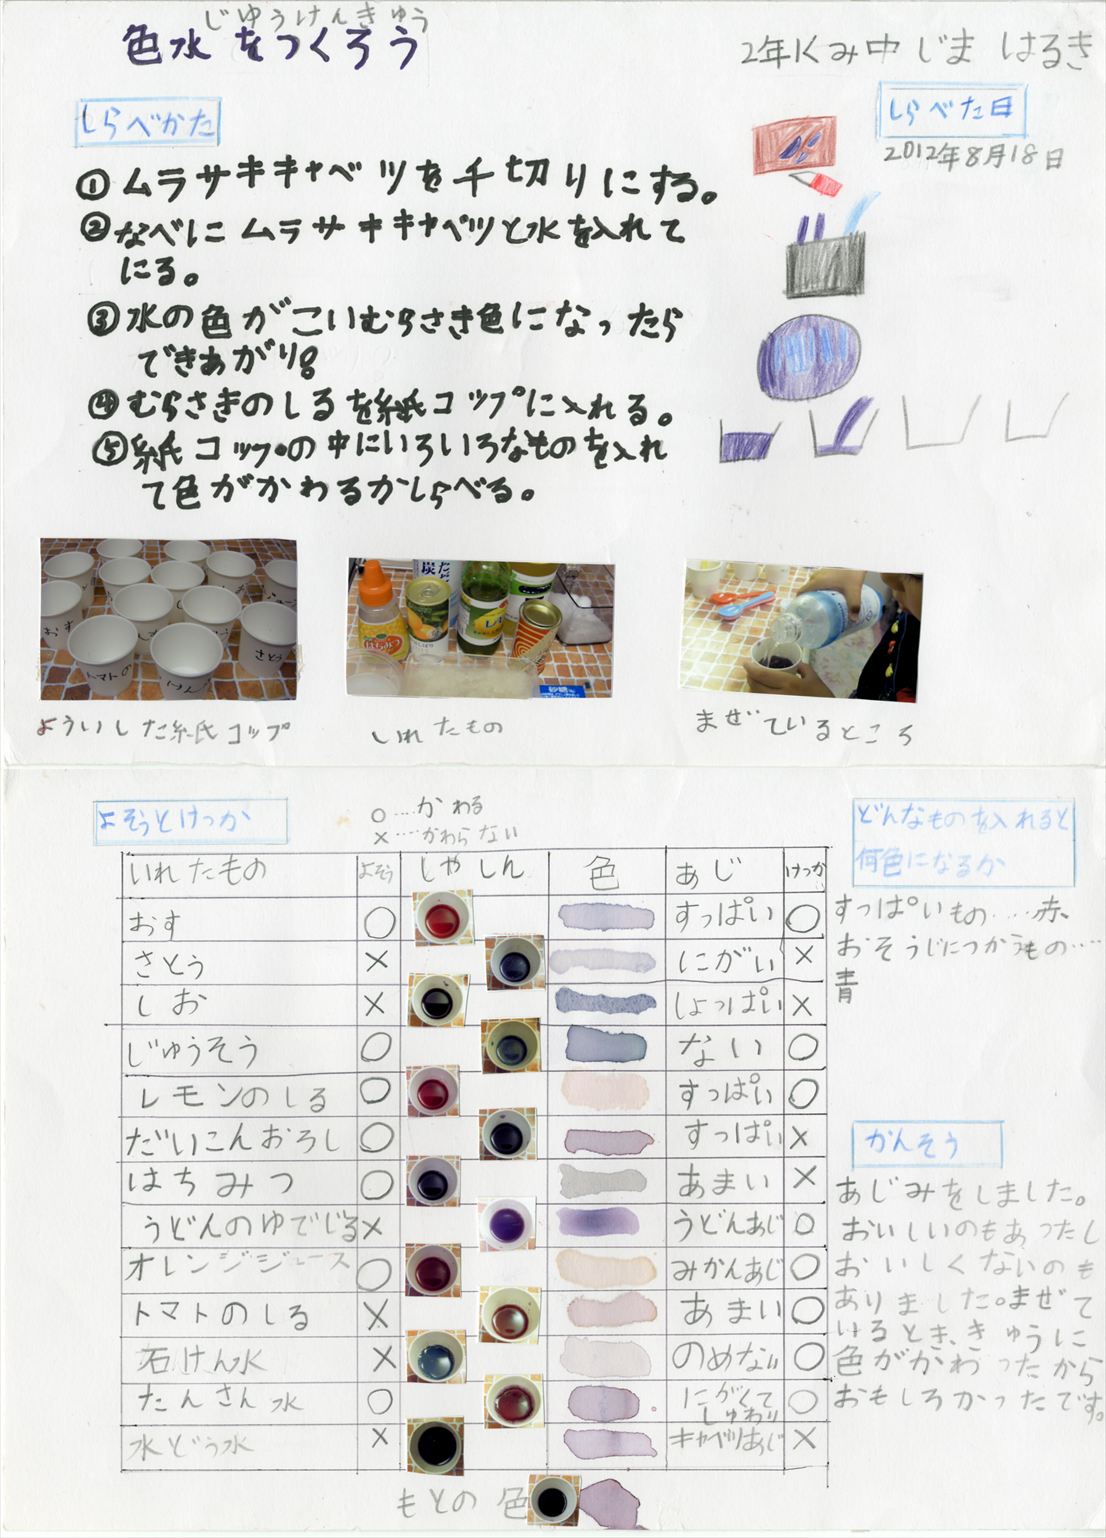 じゆうけんきゅう
色水をつくろう
2年1くみ中じま はるき
しらべかた
しらべた日
2012年8月18日
①ムラサキキャベツを千切りにする。
②なべにムラサキキャベツと水を入れて
にる。
③水の色がこいむらさき色になったら
できあがり!
④むらさきのしるを紙コップに入れる。
⑤紙コップの中にいろいろなものを入れ
て色がかわるかしらべる。
おす
さとう
トマトの
よういした紙コップ
いれたもの
まぜているところ
よそうとけっか
○‥‥かわる
×‥‥かわらない
いれたもの よそう しゃしん 色 あじ けっか
おす ○ すっぱい ○
さとう × にがい ×
しお × しょっぱい ×
じゅうそう ○ ない ○
レモンのしる ○ すっぱい ○
だいこんおろし ○ すっぱい ×
はちみつ ○ あまい ×
うどんのゆでじる × うどんあじ ○
オレンジジュース ○ みかんあじ ○
トマトのしる × あまい ○
石けん水 × のめない ○
たんさん水 ○ にがくてしゅわり ○
水どう水 × キャベツあじ ×
もとの色
どんなものを入れると
何色になるか
すっぱいもの‥‥赤、
おそうじにつかうもの‥‥
青
かんそう
あじみをしました。
おいしいのもあったし
おいしくないのも
ありました。まぜて
いるとき、きゅうに
色がかわったから
おもしろかったです。